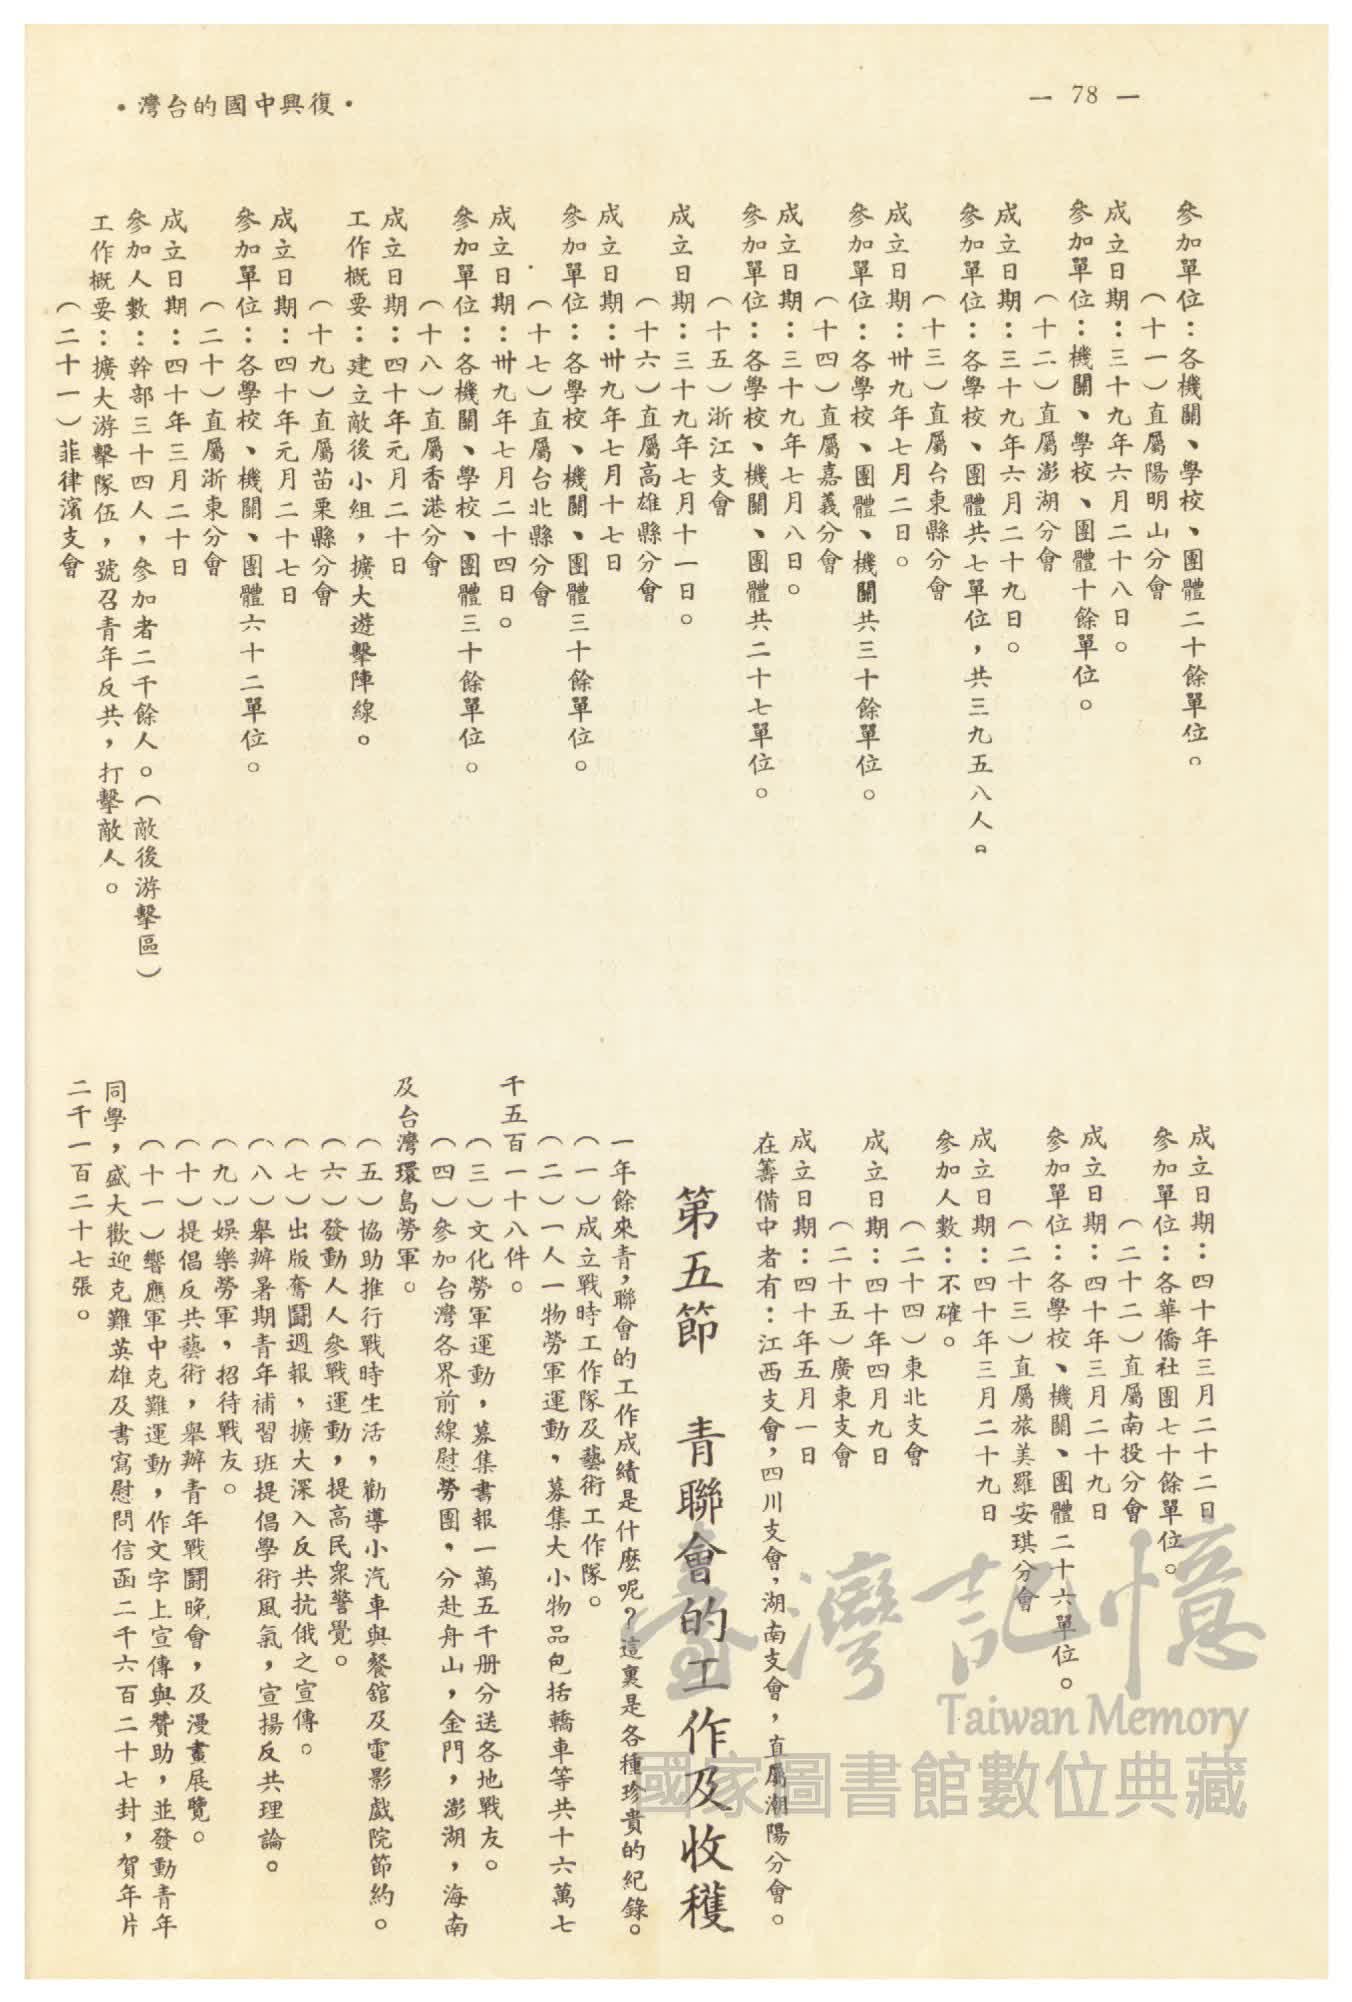 — 78 —
•復興中國的台灣•
參加單位：各機關、學校、團體二十餘單位。
（十一）直屬陽明山分會
成立日期：三十九年六月二十八日。
參加單位：機關、學校、團體十餘單位。
（十二）直屬澎湖分會
成立日期：三十九年六月二十九日。
參加單位：各學校、團體共七單位，共三九五八人。
（十三）直屬台東縣分會
成立日期：卅九年七月二日。
參加單位：各學校、團體、機關共三十餘單位。
（十四）直屬嘉義分會
成立日期：三十九年七月八日。
參加單位：各學校、機關、團體共二十七單位。
（十五）浙江支會
成立日期：三十九年七月十一日。
（十六）直屬高雄縣分會
成立日期：卅九年七月十七日
參加單位：各學校、機關、團體三十餘單位。
（十七）直屬台北縣分會
成立日期：卅九年七月二十四日。
參加單位：各機關、學校、團體三十餘單位。
（十八）直屬香港分會
成立日期：四十年元月二十日
工作概要：建立敵後小組，擴大遊擊陣線。
（十九）直屬苗栗縣分會
成立日期：四十年元月二十七日
參加單位：各學校、機關、團體六十二單位。
（二十）直屬浙東分會
成立日期：四十年三月二十日
參加人數：幹部三十四人，參加者二千餘人。（敵後游擊區）
工作概要：擴大游擊隊伍，號召青年反共，打擊敵人。
（二十一）菲律濱支會
成立日期：四十年三月二十二日
參加單位：各華僑社團七十餘單位。
（二十二）直屬南投分會
成立日期：四十年三月二十九日
參加單位：各學校、機關、團體二十六單位。
（二十三）直屬旅美羅安琪分會
成立日期：四十年三月二十九日
參加人數：不確。
（二十四）東北支會
成立日期：四十年四月九日
（二十五）廣東支會
成立日期：四十年五月一日
在籌備中者有：江西支會，四川支會，湖南支會，直屬潮陽分會。
第五節 青聯會的工作及收穫
一年餘來青，聯會的工作成績是什麽呢？這裏是各種珍貴的紀錄。
（一）成立戰時工作隊及藝術工作隊。
（二）一人一物勞軍運動，募集大小物品包括轎車等共十六萬七
千五百一十八件。
（三）文化勞軍運動，募集書報一萬五千册分送各地戰友。
（四）參加台灣各界前線慰勞團，分赴舟山，金門，澎湖，海南
及台灣環島勞軍。
（五）協助推行戰時生活，勸導小汽車與餐舘及電影戲院節約。
（六）發動人人參戰運動，提高民衆警覺。
（七）出版奮鬪週報，擴大深入反共抗俄之宣傳。
（八）舉辦暑期青年補習班提倡學術風氣，宣揚反共理論。
（九）娛樂勞軍，招待戰友。
（十）提倡反共藝術，舉辦青年戰鬪晚會，及漫畫展覽。
（十一）響應軍中克難運動，作文字上宣傳與贊助，並發動青年
同學，盛大歡迎克難英雄及書寫慰問信函二千六百二十七封，賀年片
二千一百二十七張。
臺灣記憶
Taiwan Memory
國家圖書館數位典藏